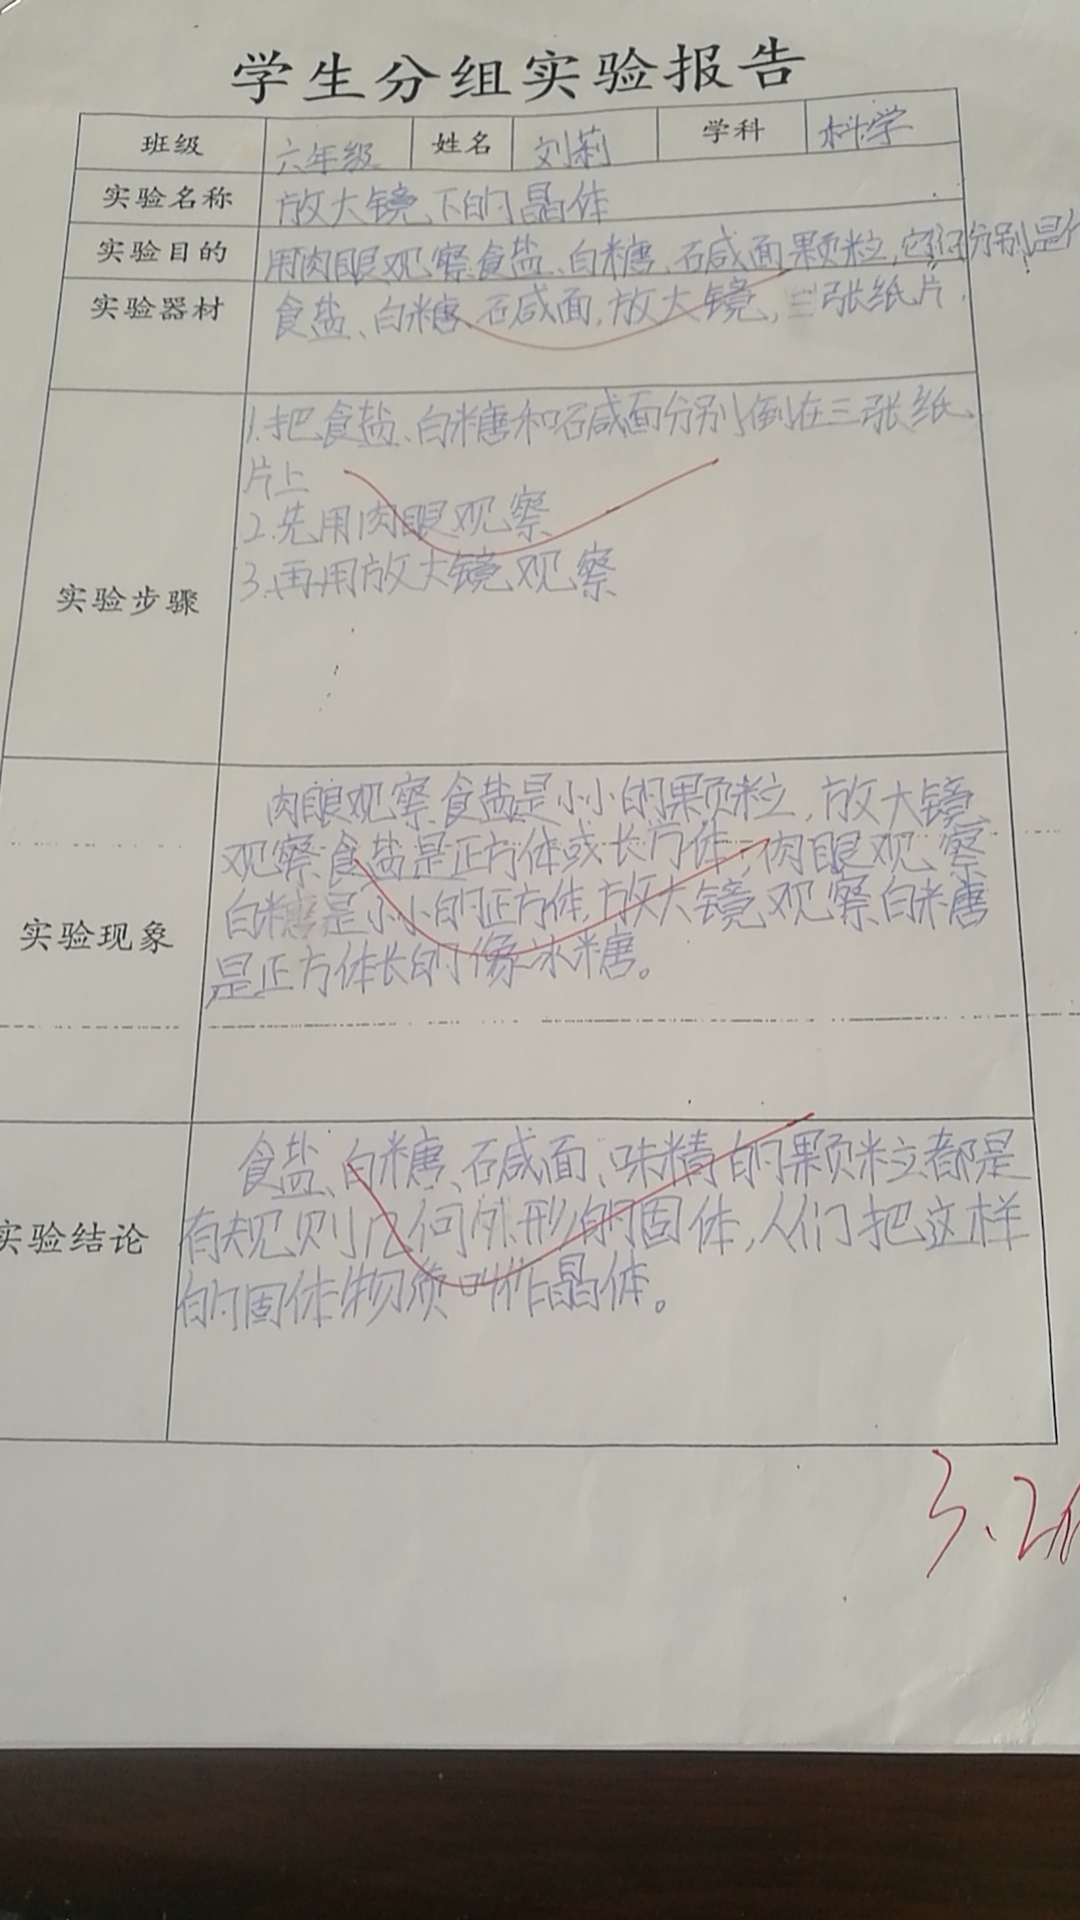 学生分组实验报告
班级 六年级 姓名 刘莉 学科 科学
实验名称 放大镜下的晶体
实验目的 用肉眼观察食盐、白糖、石咸面颗粒,它们分别是什
实验器材 食盐、白糖、石咸面,放大镜,三张纸片.
1.把食盐、白糖和石咸面分别倒在三张纸
片上
2.先用肉眼观察
3.再用放大镜观察
实验步骤
肉眼观察食盐是小小的颗粒,放大镜
观察食盐是正方体或长方体;肉眼观察
白糖是小小的正方体,放大镜观察白糖
实验现象
是正方体长的像冰糖。
食盐、白糖、石咸面、味精的颗粒都是
有规则几何外形的固体,人们把这样
实验结论
的固体物质叫作晶体。